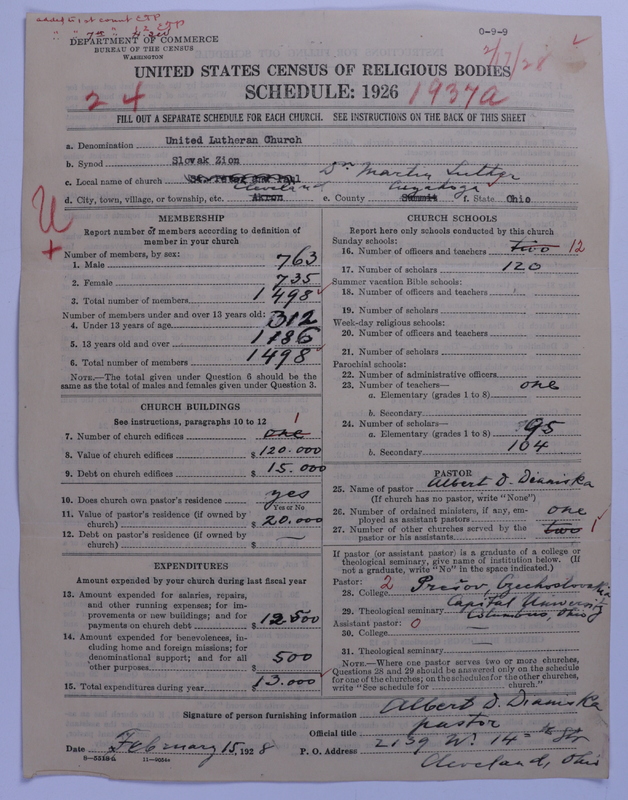 added to 1st count CJP
DEPARTMENT OF COMMERCE
BUREAU OF THE CENSUS
WASHINGTON
0-9-9
2/17/28
UNITED STATES CENSUS OF RELIGIOUS BODIES
SCHEDULE: 1926
24
1937a
FILL OUT A SEPARATE SCHEDULE FOR EACH CHURCH. SEE INSTRUCTIONS ON THE BACK OF THIS SHEET
a. Denomination United Lutheran Church
b. Synod Slovak Zion
c. Local name of church Dr. Martin Luther
d. City, town, village, or township, etc. Akron Cleveland e. County Summit Cuyahoga f. State Ohio
MEMBERSHIP
Report number of members according to definition of
member in your church
Number of members, by sex:
1. Male 763
2. Female 735
3. Total number of members 1498
Number of members under and over 13 years old:
4. Under 13 years of age 312
5. 13 years old and over 1186
6. Total number of members 1498
NOTE.—The total given under Question 6 should be the
same as the total of males and females given under Question 3.
CHURCH BUILDINGS
See instructions, paragraphs 10 to 12
7. Number of church edifices one 1
8. Value of church edifices $120.000
9. Debt on church edifices $15.000
10. Does church own pastor's residence yes
Yes or No
11. Value of pastor's residence (if owned by
church) $20.000
12. Debt on pastor's residence (if owned by
church) $ —
EXPENDITURES
Amount expended by your church during last fiscal year
13. Amount expended for salaries, repairs,
and other running expenses; for im-
provements or new buildings; and for
payments on church debt $12.500
14. Amount expended for benevolences, in-
cluding home and foreign missions; for
denominational support; and for all
other purposes 500
15. Total expenditures during year $13.000
CHURCH SCHOOLS
Report here only schools conducted by this church
Sunday schools:
16. Number of officers and teachers two 12
17. Number of scholars 120
Summer vacation Bible schools:
18. Number of officers and teachers
19. Number of scholars
Week-day religious schools:
20. Number of officers and teachers
21. Number of scholars
Parochial schools:
22. Number of administrative officers
23. Number of teachers—
a. Elementary (grades 1 to 8) one
b. Secondary
24. Number of scholars—
a. Elementary (grades 1 to 8) 95
b. Secondary 104
PASTOR
25. Name of pastor Albert D. Dianiska
(If church has no pastor, write "None")
26. Number of ordained ministers, if any, em-
ployed as assistant pastors one
27. Number of other churches served by the
pastor or his assistants two 1
If pastor (or assistant pastor) is a graduate of a college or
theological seminary, give name of institution below. (If
not a graduate, write "No" in the space indicated.)
Pastor: 2
28. College Prešov, Czechoslovakia
29. Theological seminary Capital University
Columbus, Ohio
Assistant pastor: 0
30. College —
31. Theological seminary —
NOTE.—Where one pastor serves two or more churches,
Questions 28 and 29 should be answered only on the schedule
for one of the churches; on the schedules for the other churches,
write "See schedule for church."
Signature of person furnishing information Albert D. Dianiska
Official title pastor
Date February 15, 1928 P. O. Address 2139 W. 14-th St
Cleveland, Ohio
8-5518 a 11-9054a